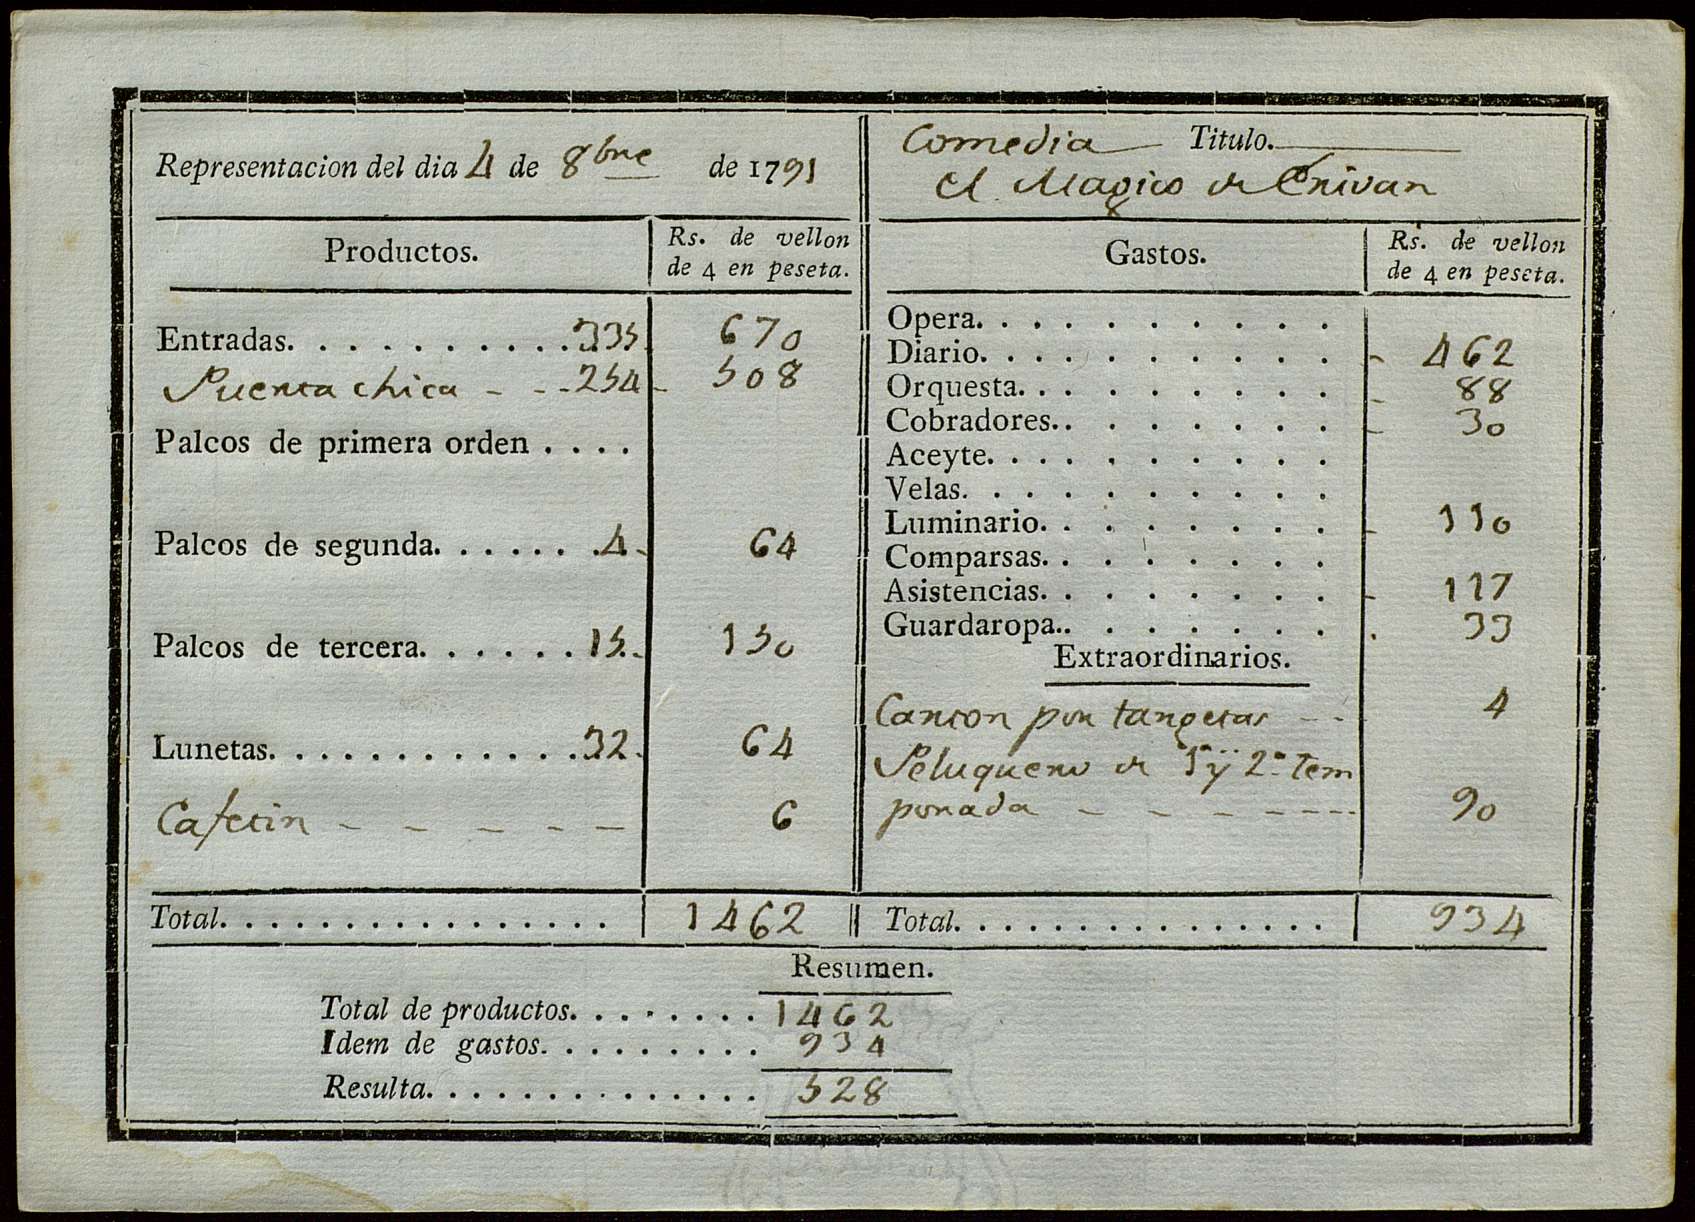 Representacion del dia 4 de 8bre de 1791
Productos.
Rs. de vellon
de 4 en peseta.
Entradas. . . . . . . . . . 335. 670
Puerta chica - - - 254 - 508
Palcos de primera orden . . . .
Palcos de segunda. . . . . . . 4 - 64
Palcos de tercera. . . . . . . 15. - 150
Lunetas. . . . . . . . . . . . . 32. 64
Cafetin - - - - - - 6
Total. . . . . . . . . . . . . . . . . 1462
Comedia Titulo.
el Magico de
Gastos.
Rs. de vellon
de 4 en peseta.
Opera. . . . . . . . . . .
Diario. . . . . . . . . . . - 462
Orquesta. . . . . . . . . - 88
Cobradores.. . . . . . . . - 30
Aceyte. . . . . . . . . . .
Velas. . . . . . . . . . .
Luminario. . . . . . . . . - 110
Comparsas. . . . . . . . .
Asistencias. . . . . . . . . - 117
Guardaropa.. . . . . . . . . 33
Extraordinarios.
Carton por targetas - - 4
Peluquero de 1ª y 2ª Tem
porada - - - - - - 90
Total. . . . . . . . . . . . . . . . 934
Resumen.
Total de productos. . . . . . . . 1462
Idem de gastos. . . . . . . . . . 934
Resulta. . . . . . . . . . . . . . . 528